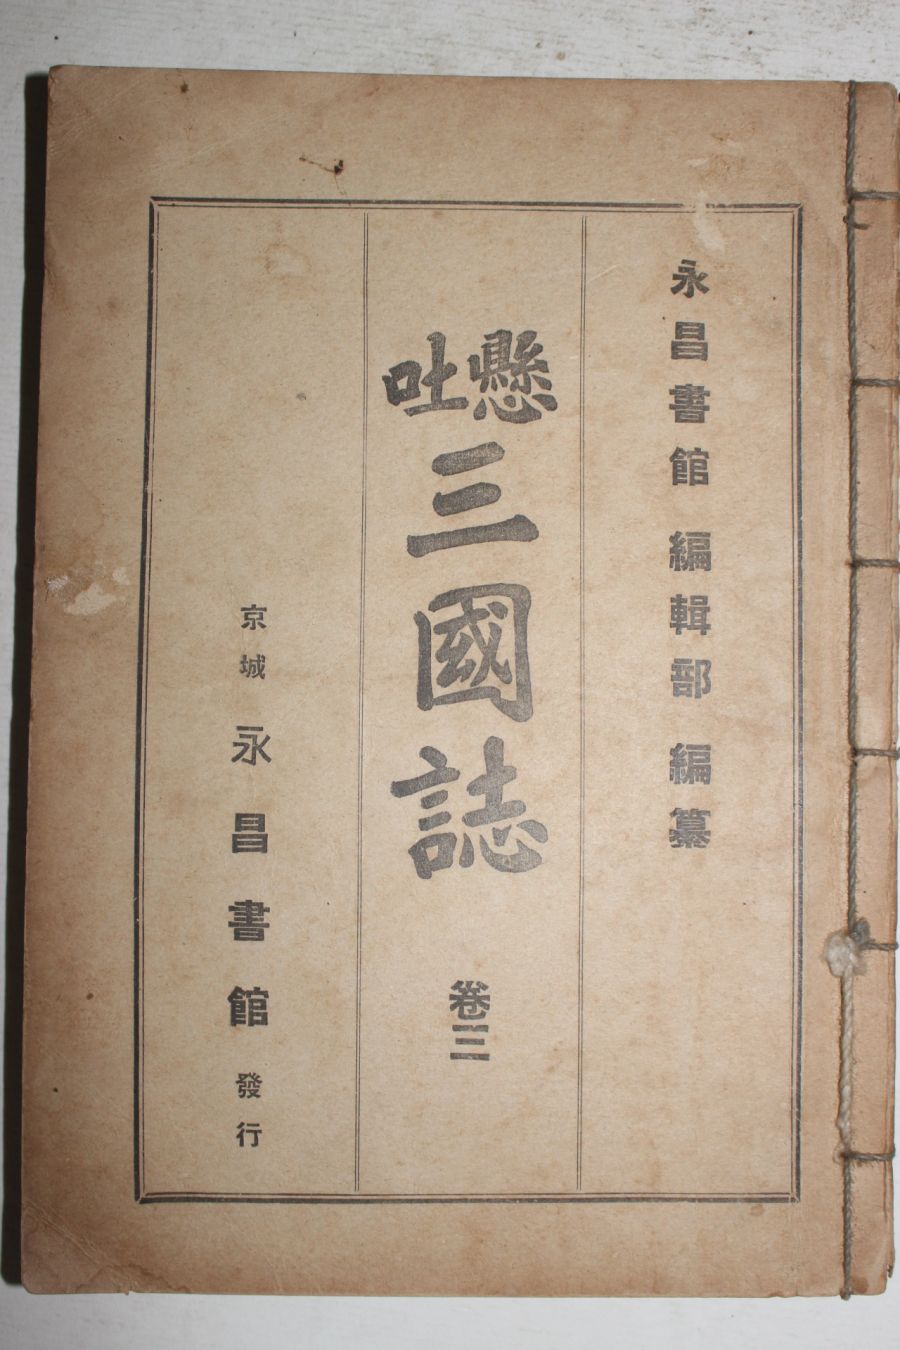 永昌書館 編輯部 編纂
懸吐
三國誌 卷三
京城 永昌書館 發行